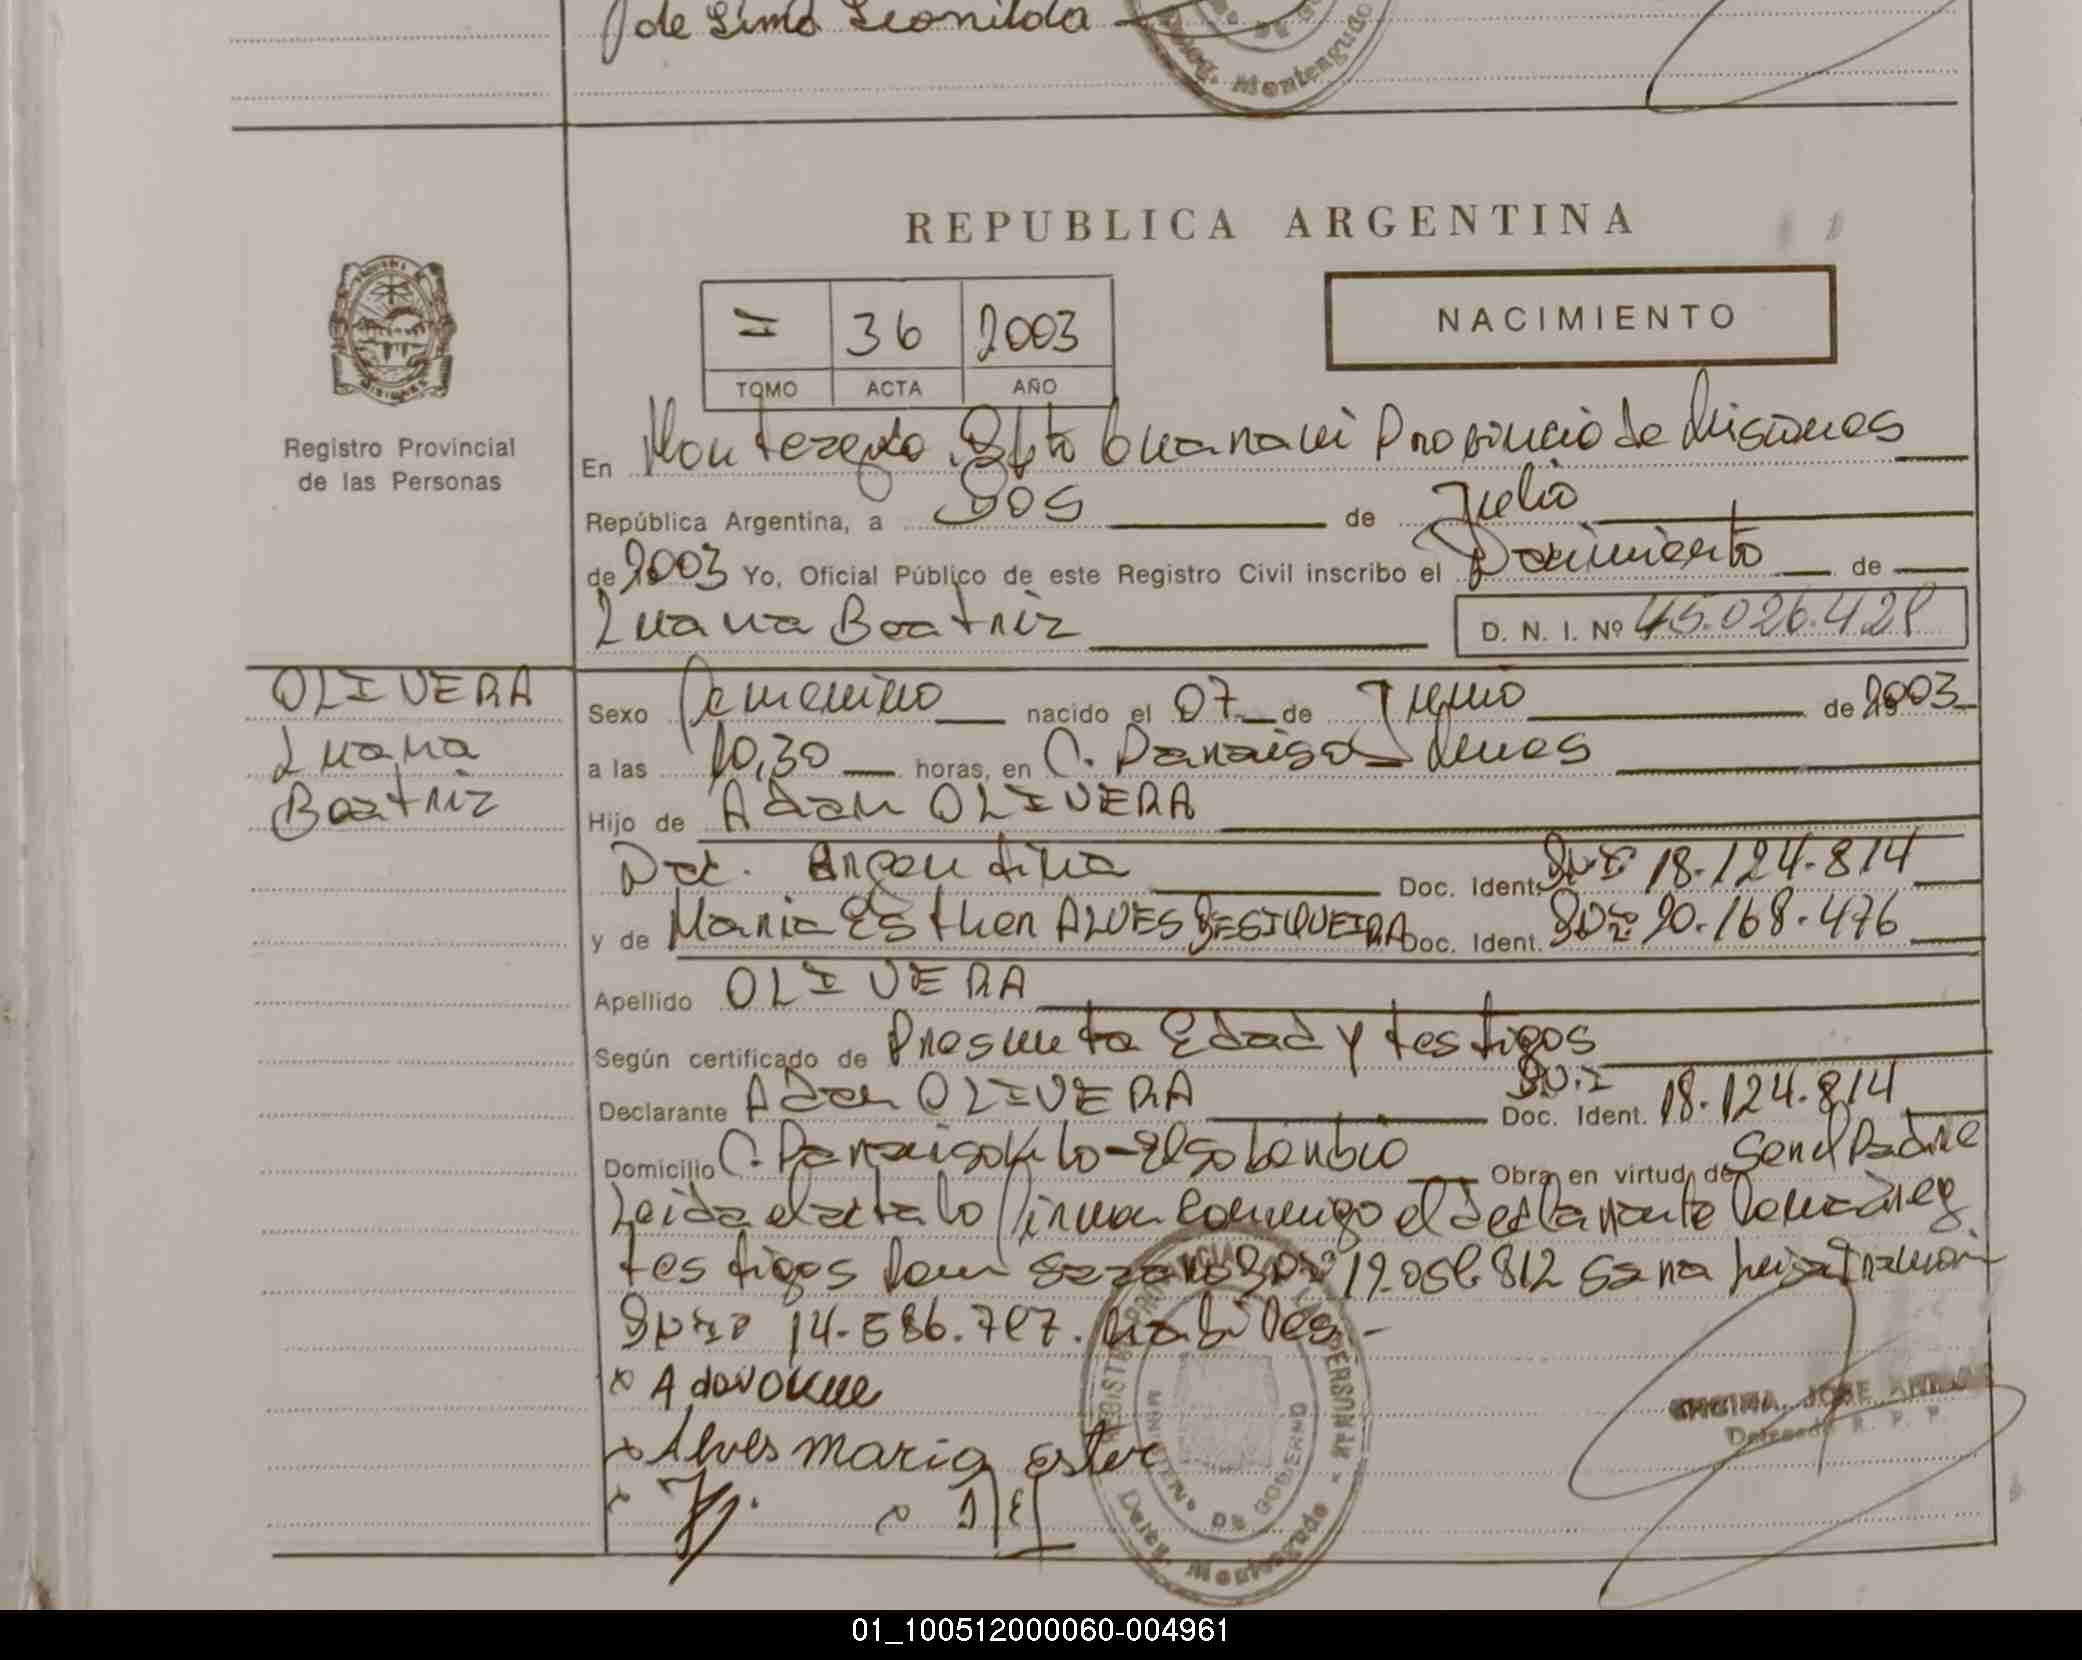 de Lima Leonilda
Deleg. Monteagudo
REPUBLICA ARGENTINA
= 36 2003
TOMO ACTA AÑO
NACIMIENTO
Registro Provincial
de las Personas
En Monteagudo Dpto Guarani Provincia de Misiones
República Argentina, a Dos de Julio
de 2003 Yo, Oficial Público de este Registro Civil inscribo el Nacimiento de
Luana Beatriz D. N. I. Nº 45.026.428
OLIVERA
Luana
Beatriz
Sexo Femenino nacido el 07 de Junio de 2003
a las 10,30 horas, en C. Paraiso
Hijo de Adan OLIVERA
Nac. Argentina Doc. Ident. DNI 18.124.814
y de Maria Esther ALVES DESIQUEIRA Doc. Ident. DNI 20.168.476
Apellido OLIVERA
Según certificado de Presunta Edad y testigos
Declarante Adan OLIVERA Doc. Ident. DNI 18.124.814
Domicilio C. Paraiso El soberbio Obra en virtud de Ser el Padre
Leida el acta lo firman conmigo el declarante la madre y
testigos 12.058.812 Sara
14.586.787. habiles.-
Alves maria ester
REGISTRO PROVINCIAL DE LAS PERSONAS
MINISTERIO DE GOBIERNO
Deleg. Monteagudo
JOSE
Delegado R. P. P.
01_100512000060-004961